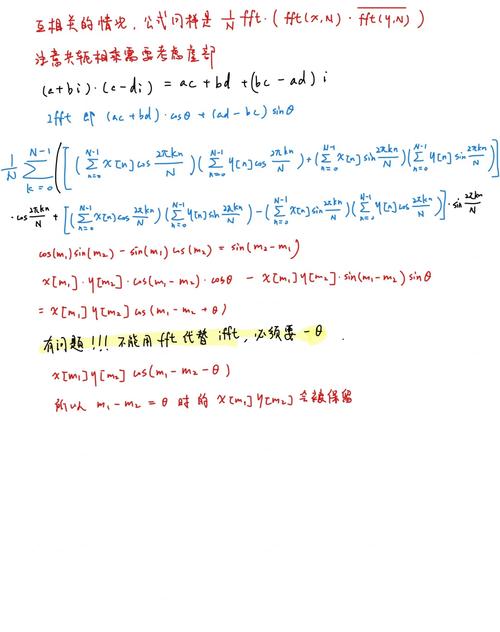 互相关的情况，公式同样是 1/N fft·( fft(x,N) · \overline{fft(y,N)} )
注意共轭相乘需要考虑虚部
(a+bi)·(c-di) = ac+bd+(bc-ad)i
ifft 即 (ac+bd)·cosθ+(ad-bc)sinθ
\frac{1}{N}\sum_{k=0}^{N-1}([(\sum_{n=0}^{N-1}x[n]cos\frac{2πkn}{N})(\sum_{n=0}^{N-1}y[n]cos\frac{2πkn}{N})+(\sum_{n=0}^{N-1}x[n]sin\frac{2πkn}{N})(\sum_{n=0}^{N-1}y[n]sin\frac{2πkn}{N})]
·cos\frac{2πkn}{N}+[(\sum_{n=0}^{N-1}x[n]cos\frac{2πkn}{N})(\sum_{n=0}^{N-1}y[n]sin\frac{2πkn}{N})-(\sum_{n=0}^{N-1}x[n]sin\frac{2πkn}{N})(\sum_{n=0}^{N-1}y[n]cos\frac{2πkn}{N})]·sin\frac{2πkn}{N})
cos(m₁)sin(m₂)-sin(m₁)cos(m₂)=sin(m₂-m₁)
x[m₁]·y[m₂]·cos(m₁-m₂)·cosθ - x[m₁]y[m₂]·sin(m₁-m₂)sinθ
= x[m₁]y[m₂]cos(m₁-m₂+θ)
有问题!!! 不能用fft代替ifft，必须要-θ.
x[m₁]y[m₂]cos(m₁-m₂-θ)
所以 m₁-m₂=θ 时的 x[m₁]y[m₂] 会被保留